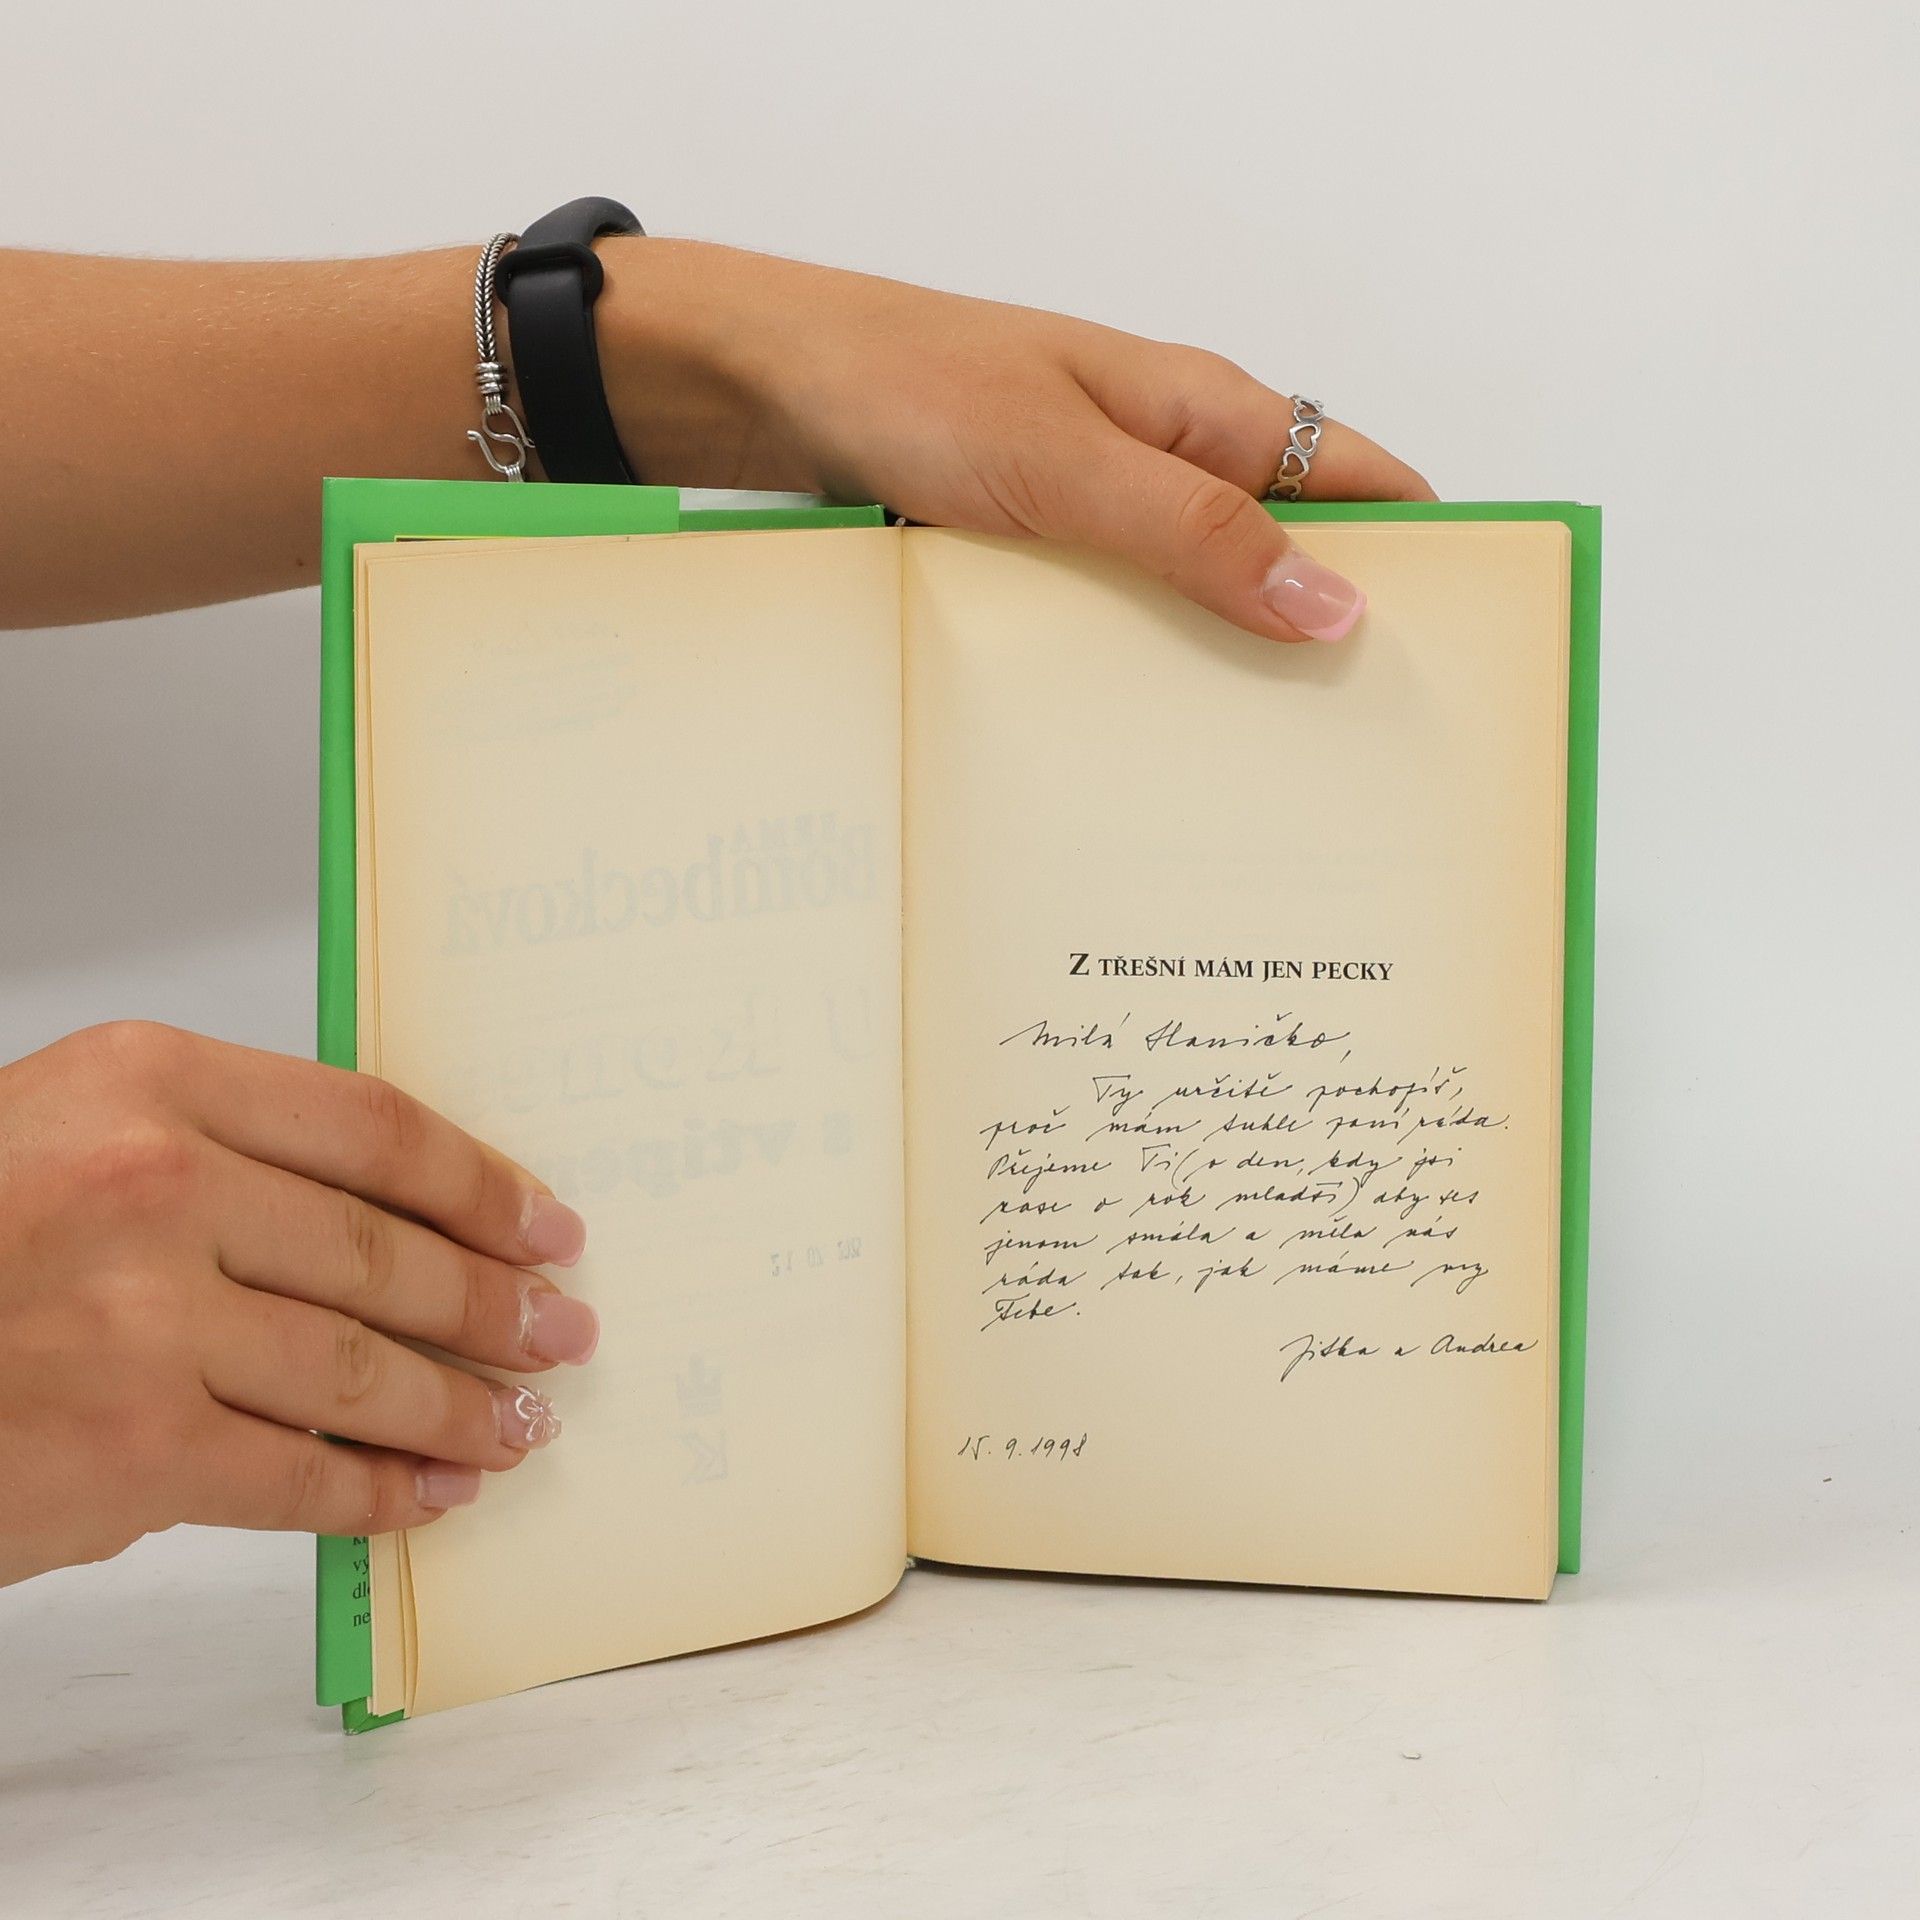 Z TŘEŠNÍ MÁM JEN PECKY
Milá Haničko,
Ty určitě pochopíš,
proč mám tuhle paní ráda.
Přejeme Ti (v den, kdy jsi
zase o rok mladší) aby ses
jenom smála a měla nás
ráda tak, jak máme my
Tebe.
Jitka a Andrea
15. 9. 1998
Bombecková
vý
ne